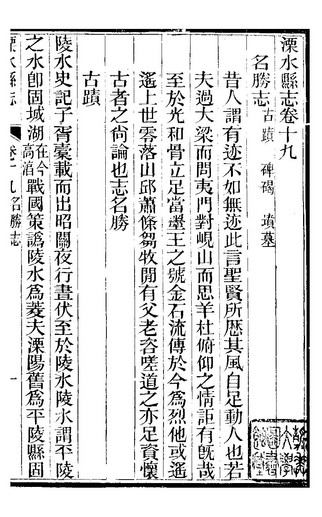 溧水縣志卷十九
名勝志 古蹟 碑碣 墳墓
昔人謂有迹不如無迹此言聖賢所歷其風自足動人也若
夫過大梁而問夷門對峴山而思羊杜俯仰之情詎有旣哉
至於光和骨立足當墨王之號金石流傳於今爲烈他或遙
遙上世零落山邱蕭條芻牧閒有父老容嗟道之亦足資懷
古者之尙論也志名勝
古蹟
陵水史記子胥橐載而出昭關夜行晝伏至於陵水陵水謂平陵
之水卽固城湖在今高淳戰國策譌陵水爲菱夫溧陽舊爲平陵縣固
溧水縣志 卷十九 名勝志 一